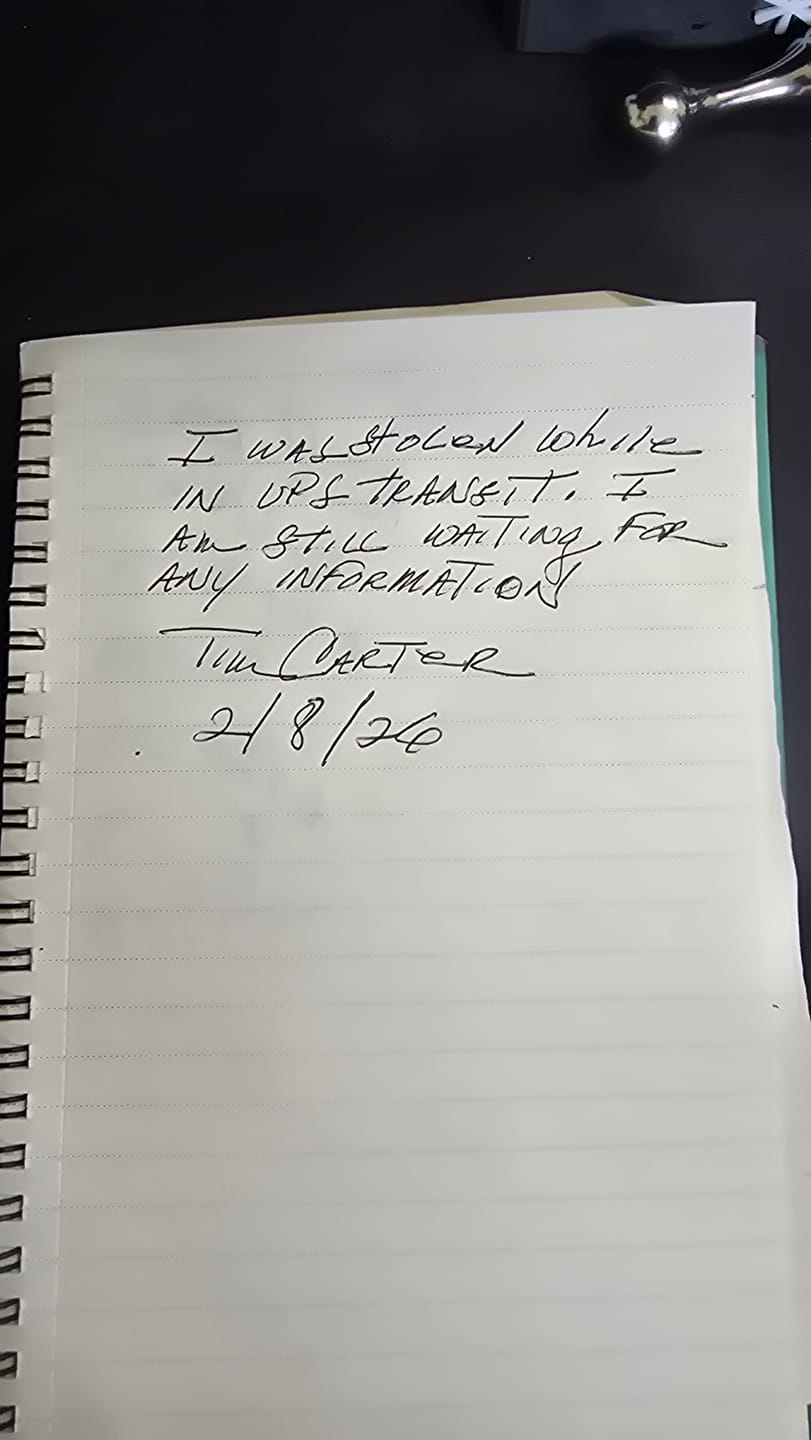 I WAS STOLEN While
IN UPS TRANSIT. I
Am STILL WAITING FOR
ANY INFORMATION
Tim CARTER
2/8/26